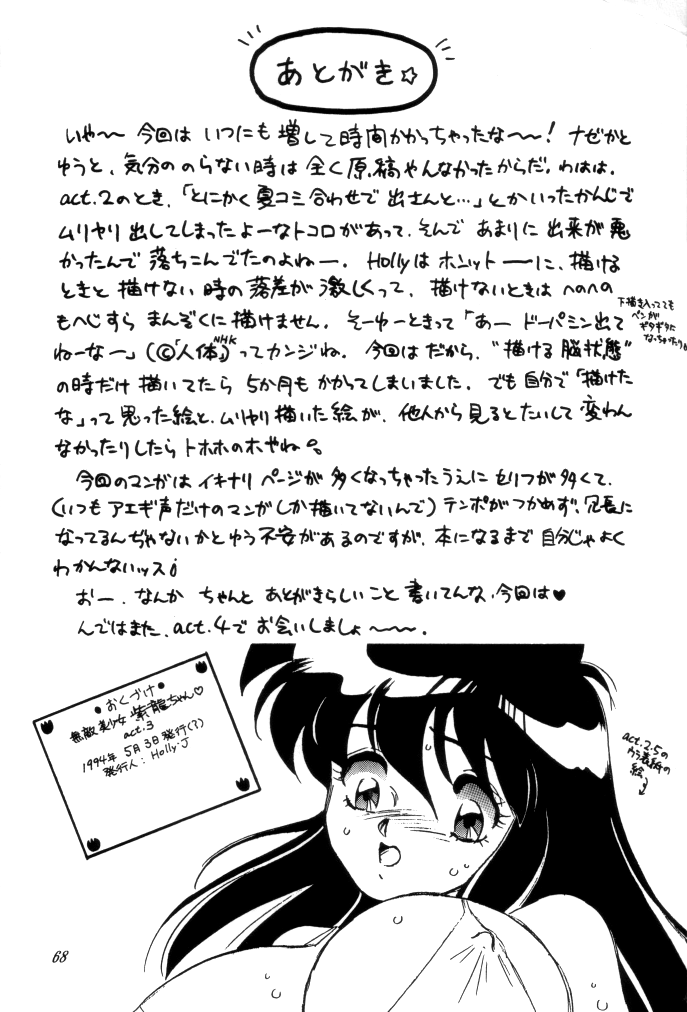 あとがき☆
いや〜〜 今回は いつにも 増して時間かかっちゃったな〜〜! ナゼかと
ゆうと、気分の のらない時は 全く原稿やんなかったからだ。わはは。
act.2のとき、「とにかく夏コミ合わせで 出さんと…」とかいったかんじで
ムリヤリ 出してしまったよーなトコロがあって、そんで あまりに 出来が 悪
かったんで 落ちこんでたのよねー。 Hollyは ホニットーーに、描ける
ときと 描けない 時の 落差が 激しくって、描けないときは へのへの
もへじすら まんぞくに 描けません。そーゆーときって「あー ドーパミン出て
ねーなー」(©「人体」NHK)ってカンジね。 今回は だから、"描ける 脳状態"
の時だけ 描いてたら 5か月も かかってしまいました。でも自分で「描けた
な」って 思った絵と、ムリヤリ 描いた絵が、他人から 見ると たいして 変わん
なかったりしたら トホホのホやね。
下描き入ってても
ペンが
ギタギタに
なっちゃったり
今回のマンガは イキナリ ページが 多くなっちゃったうえに セリフが多くて、
(いつも アエギ声だけのマンガしか描いてないんで) テンポがつかめず、冗長に
なってるんぢゃないかとゆう 不安があるのですが、本になるまで 自分じゃよく
わかんないッス。
おー、なんか ちゃんと あとがきらしいこと 書いてんな、今回は♥
んではまた、act.4で お会いしましょ〜〜〜。
●おくづけ●
無敵美少女 紫龍ちゃん♡
act.3
1994年 5月3日発行(?)
発行人: Holly.J
act.2.5の
ウラ表紙の
絵
↓
68